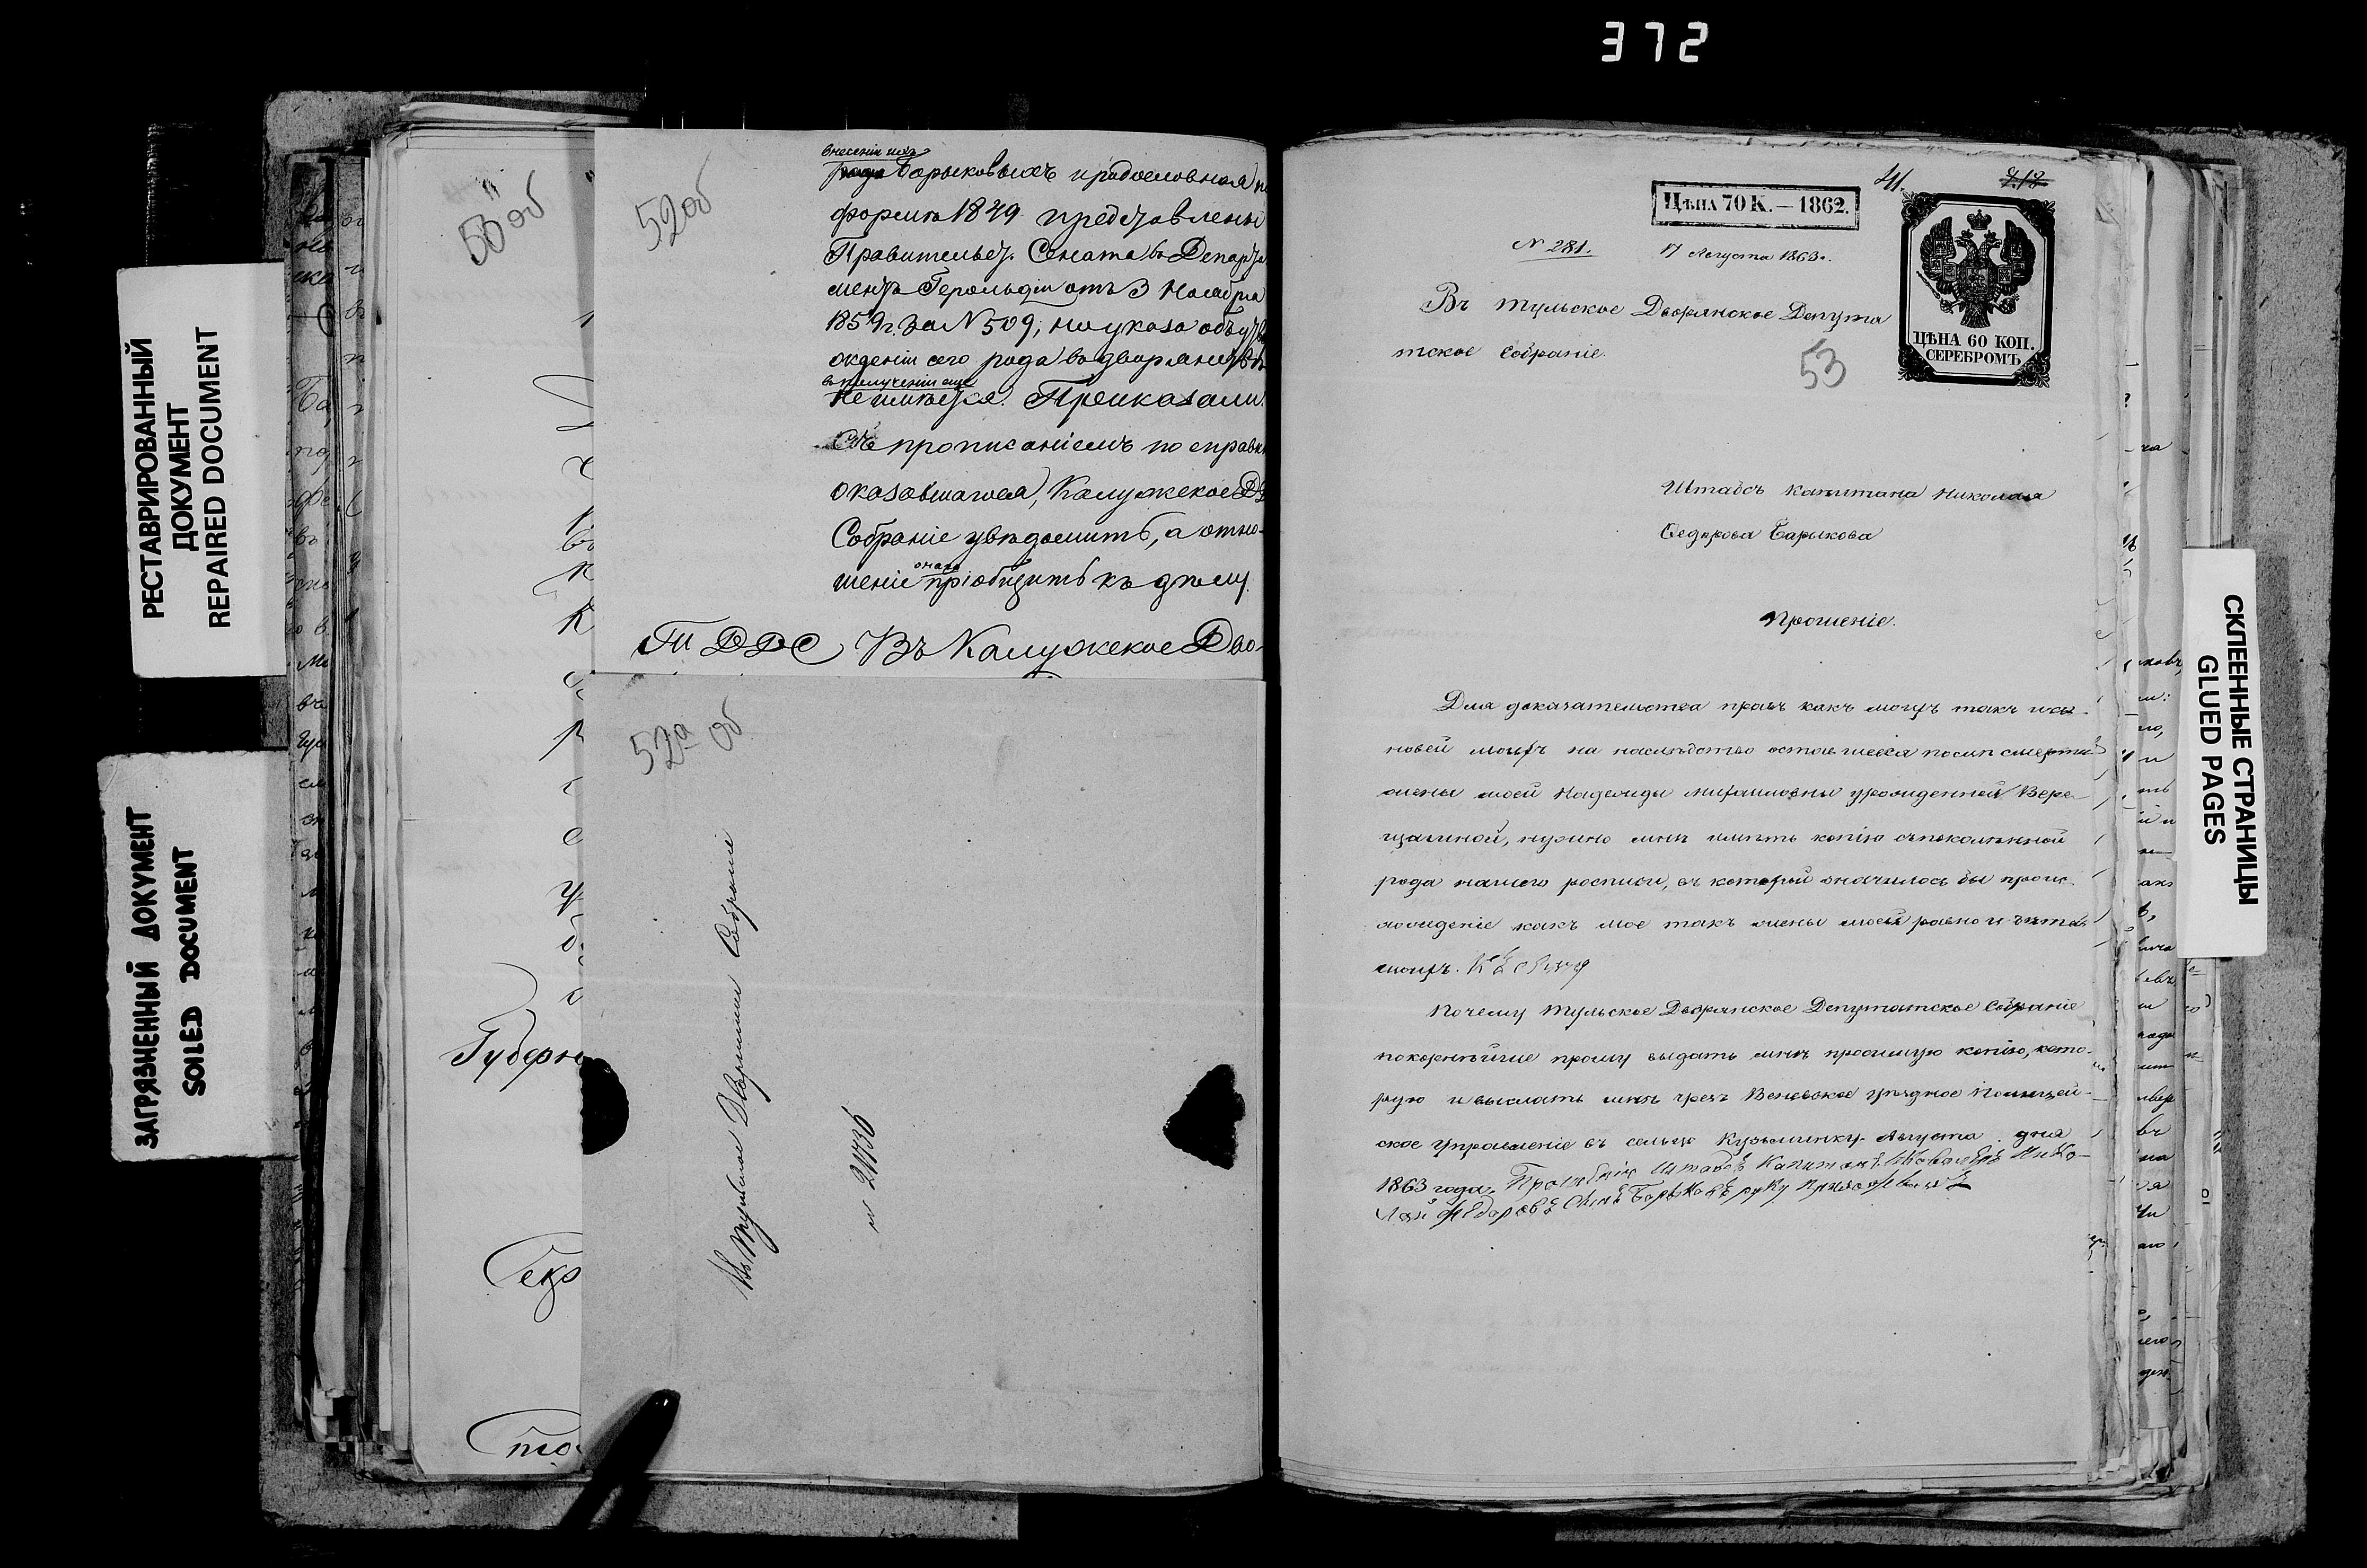 372
РЕСТАВРИРОВАННЫЙ
ДОКУМЕНТ
REPAIRED DOCUMENT
ЗАГРЯЗНЕННЫЙ ДОКУМЕНТ
SOILED DOCUMENT
50 об
Губерн
Секр
52об
внесеніи ихъ
рода Барыковыхъ и родословная
форма 1849 представлены
Правительст. Сената въ Департа
ментъ Герольдіи отъ 3 Ноября
1859 г. за N 509, но указа объ утв
ожденіи сего рода въ дворянствѣ
въ полученіи еще
не имѣется. Приказали:
Съ прописаніемъ по справкѣ
оказавшагося, Калужское Дв
Собраніе увѣдомить, а отно-
шеніе онаго пріобщить къ дѣлу.
Т Д Д С Въ Калужское Дво-
52а об
Въ Тульское Дворянское Собраніе
41.
Цѣна 70 К. — 1862.
N 281. 17 Августа 1863 г.
ЦѢНА 60 КОП.
СЕРЕБРОМЪ
Въ Тульское Дворянское Депута
тское Собраніе.
53
Штабсъ Капитана Николая
Ѳедорова Барыкова
Прошеніе.
Для доказательства правъ какъ моихъ такъ и сы-
новей моихъ на наслѣдство оставшееся послѣ смерти
жены моей Надежды Михайловны урожденной Вере-
щагиной, нужно мнѣ имѣть копію съ поколѣнной
рода нашего росписи, въ которой значилось бы проис-
хожденіе какъ мое такъ жены моей равно и дѣтей
моихъ.
Почему Тульское Дворянское Депутатское Собраніе
покорнѣйше прошу выдать мнѣ просимую копію, кото-
рую и выслать мнѣ чрезъ Веневское уѣздное Полицей-
ское Управленіе въ сельцо Кузьминку. Августа дня
1863 года. Прошенію Штабсъ Капитанъ и Кавалеръ Нико-
лай Федоровъ Сынъ Барыковъ руку приложилъ
СКЛЕЕННЫЕ СТРАНИЦЫ
GLUED PAGES